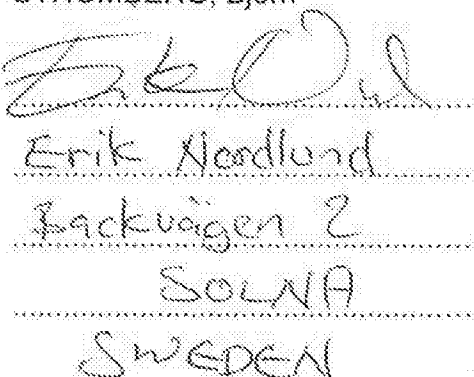 Erik Nordlund
Backvägen 2
SOLNA
SWEDEN